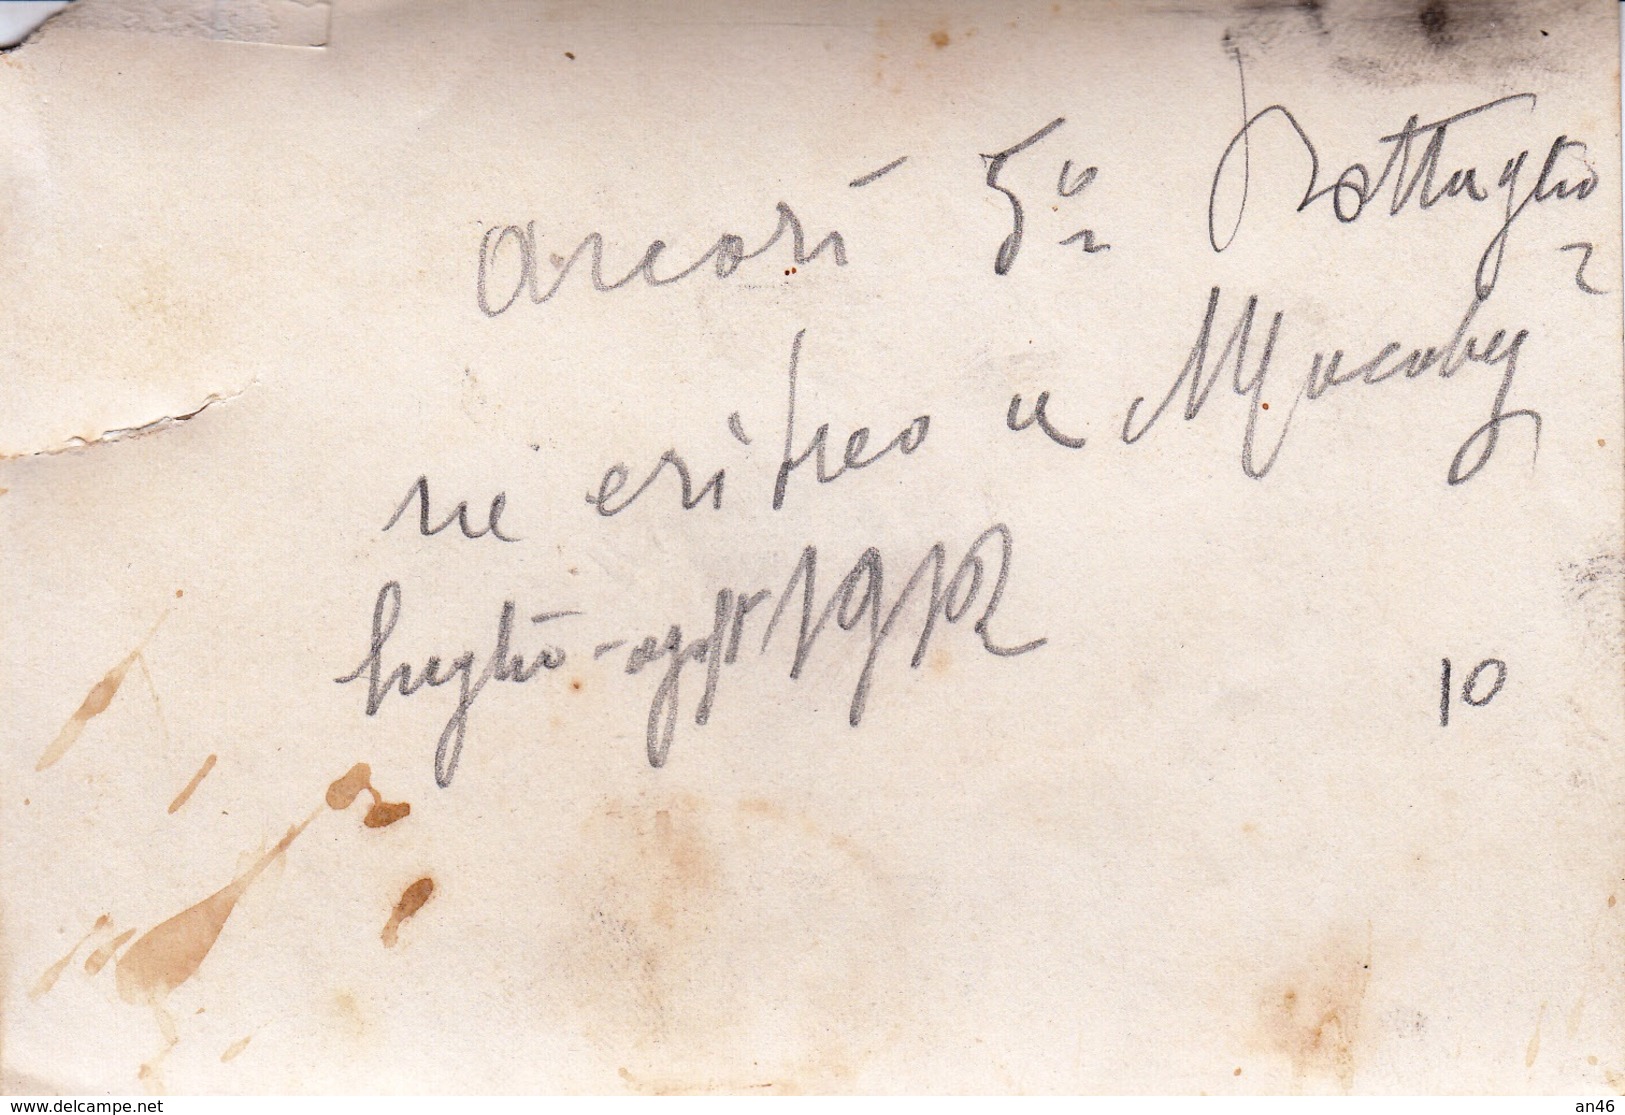 ascari 5° Battaglio
ne eritreo a
luglio - agost 1912
10
www.delcampe.net
an46